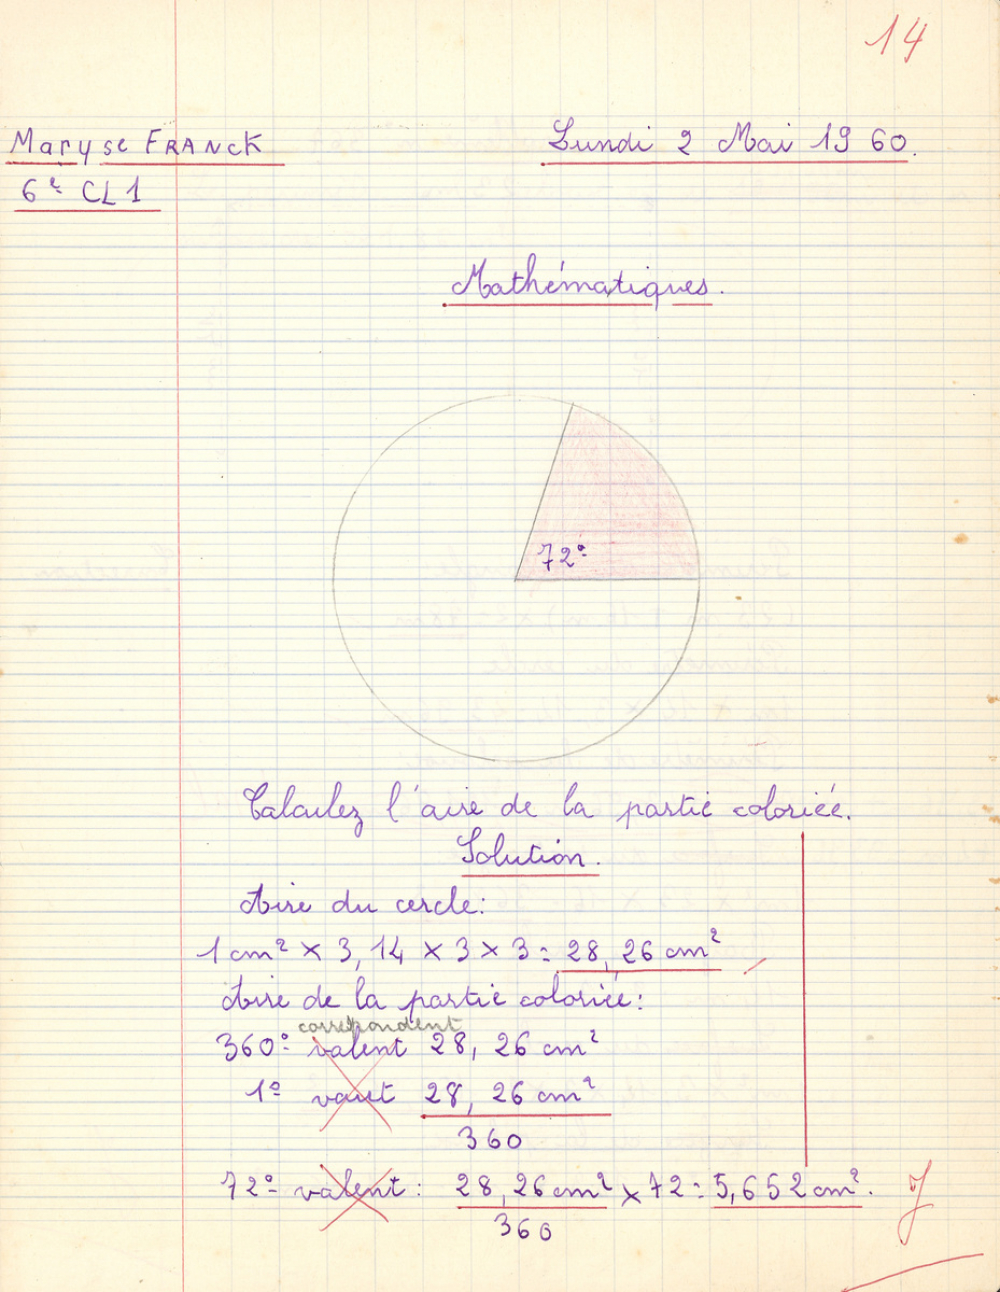 14
Maryse FRANCK
Lundi 2 Mai 1960.
6e CL1
Mathématiques.
72°
Calculez l'aire de la partie coloriée.
Solution.
Aire du cercle:
1 cm² × 3,14 × 3 × 3 = 28,26 cm²
Aire de la partie coloriée:
correspondent
360° valent 28,26 cm²
1° vaut 28,26 cm²
360
72° valent: 28,26 cm² × 72 = 5,652 cm².
360